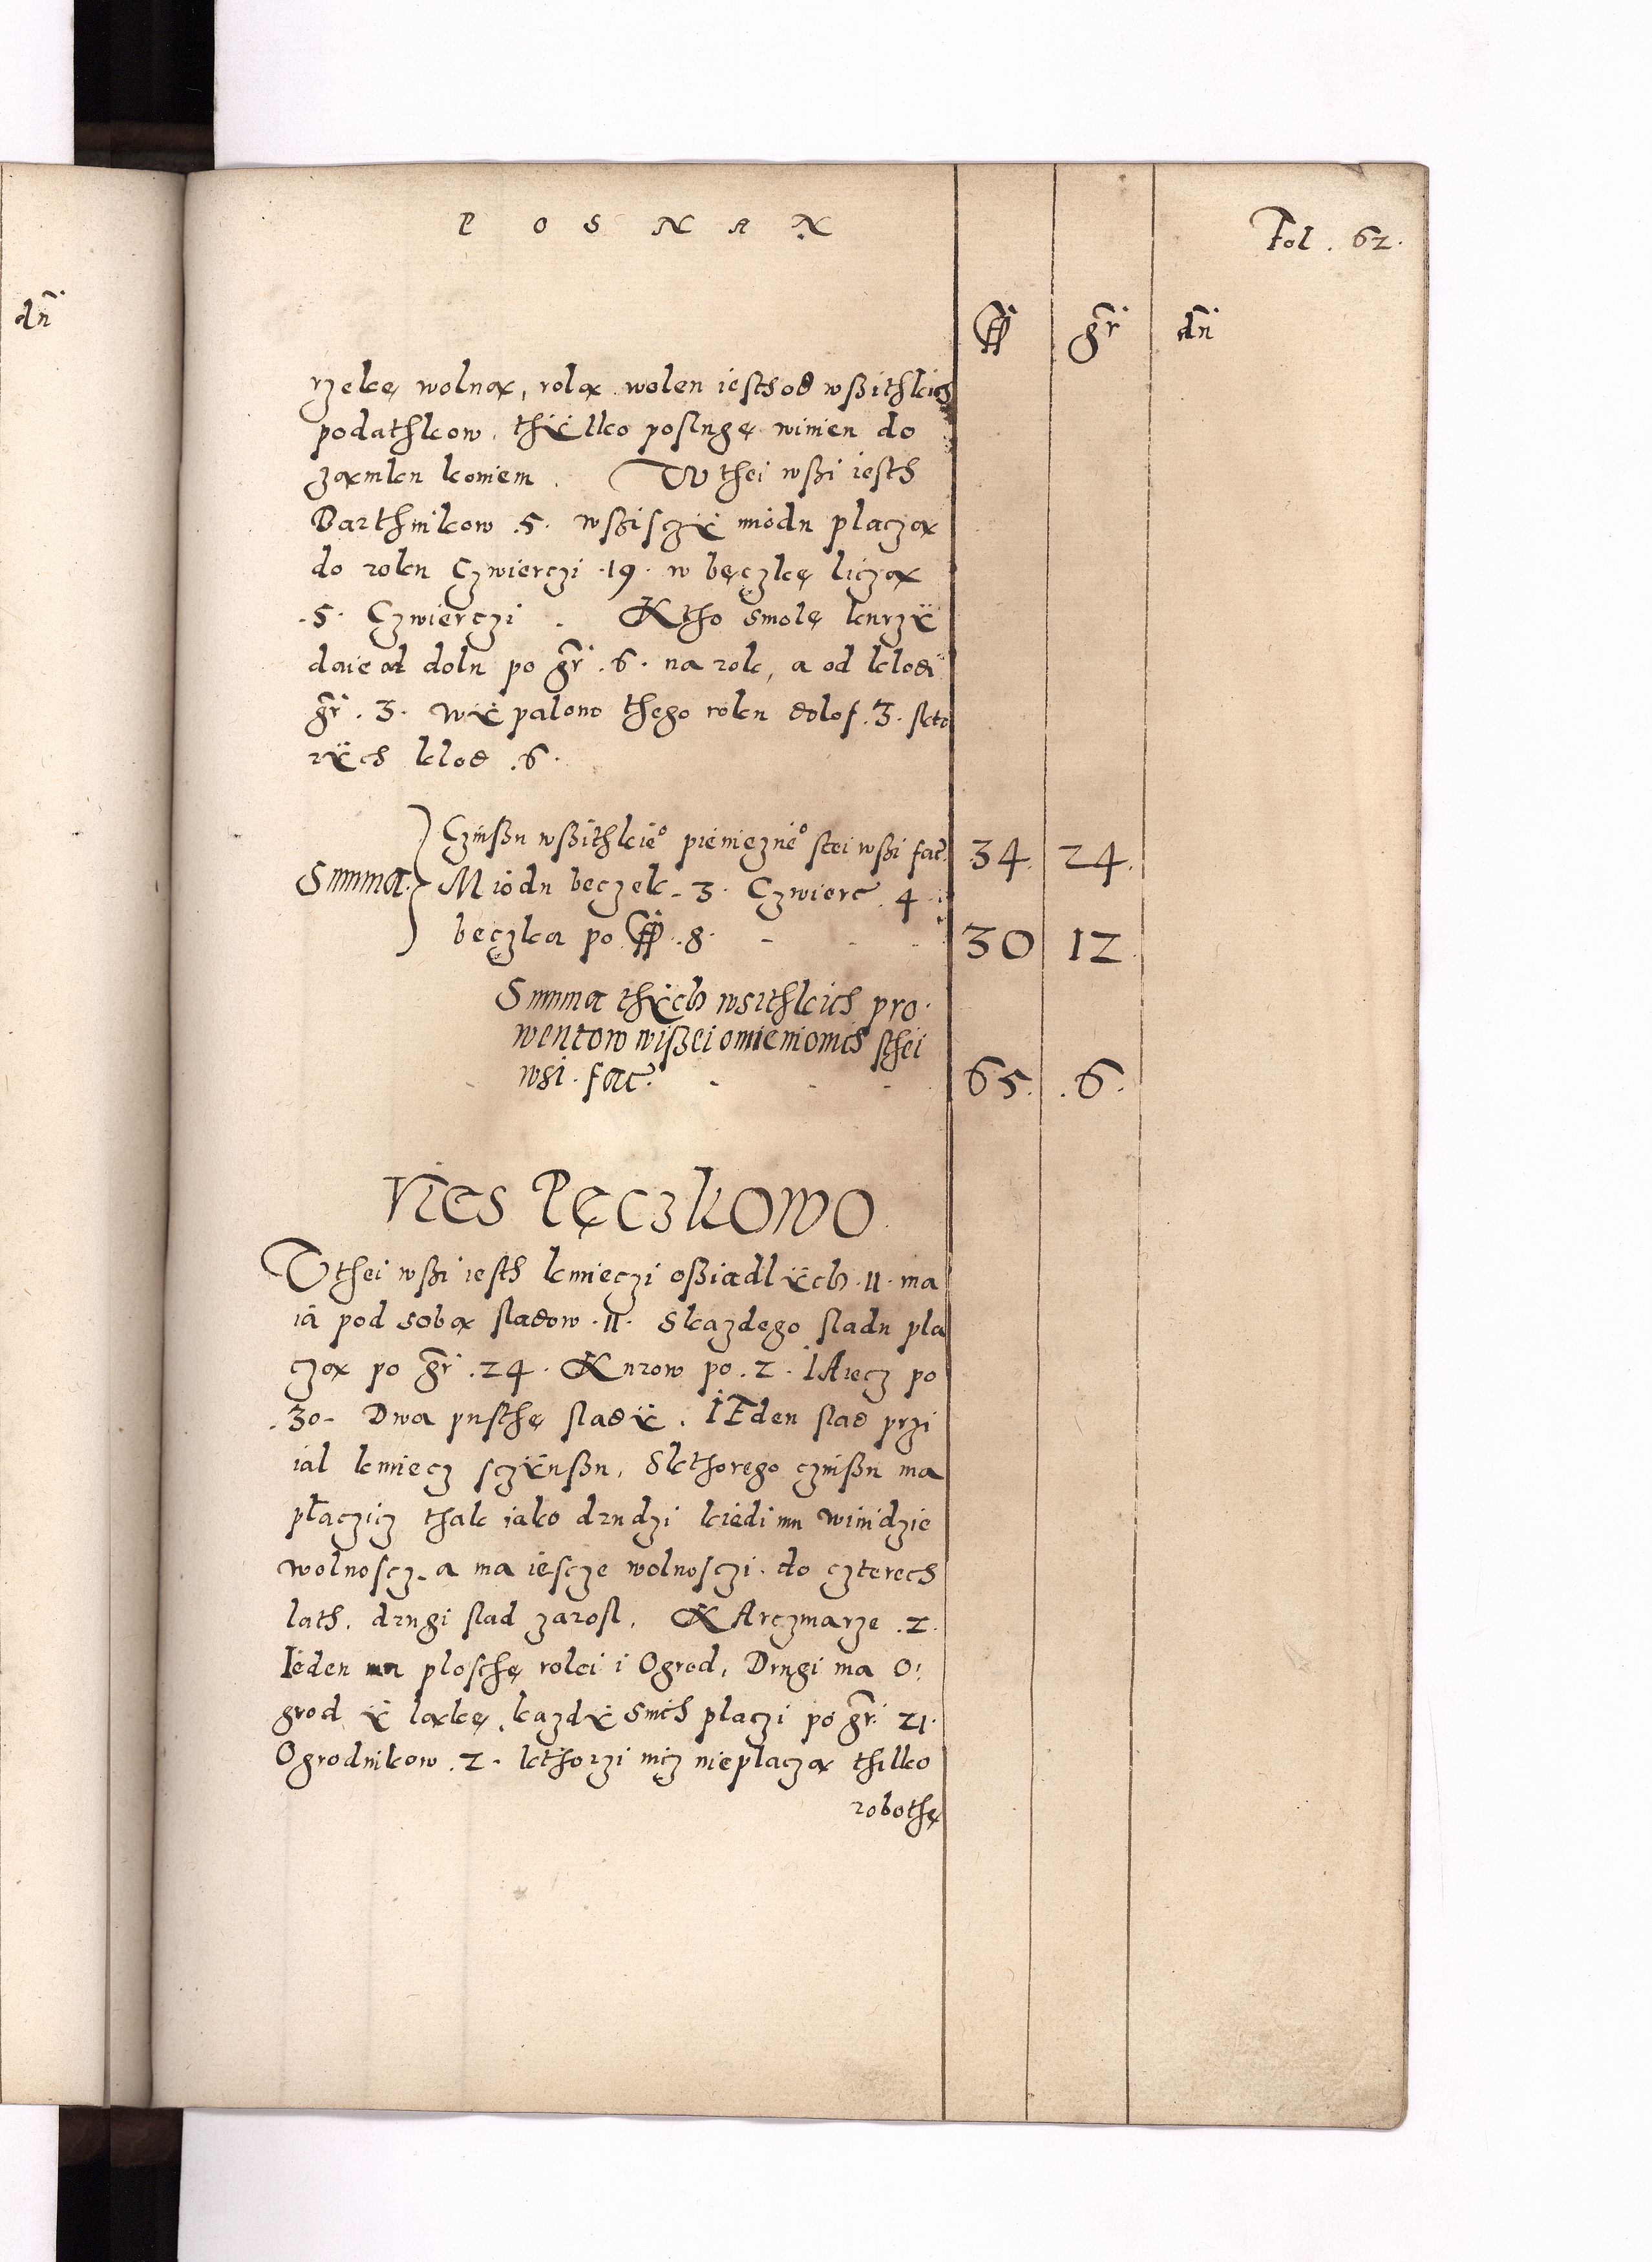 P O S N A N
Fol. 62.
dn̄
ff gr̄ dn̄
rzekę wolną, rolą wolen iesth od wßithkich
podathkow, thÿlko poslugę winien do
zamku koniem. W thei wßi iesth
Barthnikow .5. wßisczÿ miodu placzą
do roku Czwierczi .19. w bęczkę liczą
.5. Czwierczi. Ktho smolę kurzÿ
daie od dolu po gr̄ .6. na rok, a od klodi
gr̄ .3. wÿpalono thego roku dolof .3. skto
rÿch klod .6.
Summa Czinßu wßithkie° pieniezne° stei wßi fac. 34. 24.
Miodu beczek .3. Czwierc .4.
beczka po ff .8. 30 12.
Summa thÿch wsithkich pro.
wentow wißei omienionich sthei
wsi. fac. 65. .6.
Vies Pęczkowo
W thei wßi iesth kmieczi oßiadlÿch .11. ma
ią pod sobą sladow .11. Skazdego sladu pla
czą po gr̄ .24. Kurow po .2. IAiecz po
.30. Dwa pusthę sladÿ. IEden slad przi
ial kmiecz sczÿnßu, Skthorego czinßu ma
płaczicz thak iako drudzi kiedi mu winidzie
wolnoscz. a ma iescze wolnosczi. do czterech
lath. drugi slad zarosl. KArczmarze .2.
Ieden ma plosthę rolei i Ogrod, Drugi ma O:
grod ÿ ląkę, kazdÿ snich placzi po gr̄ 21.
Ogrodnikow .2. kthorzi nicz nieplaczą thilko
robothę